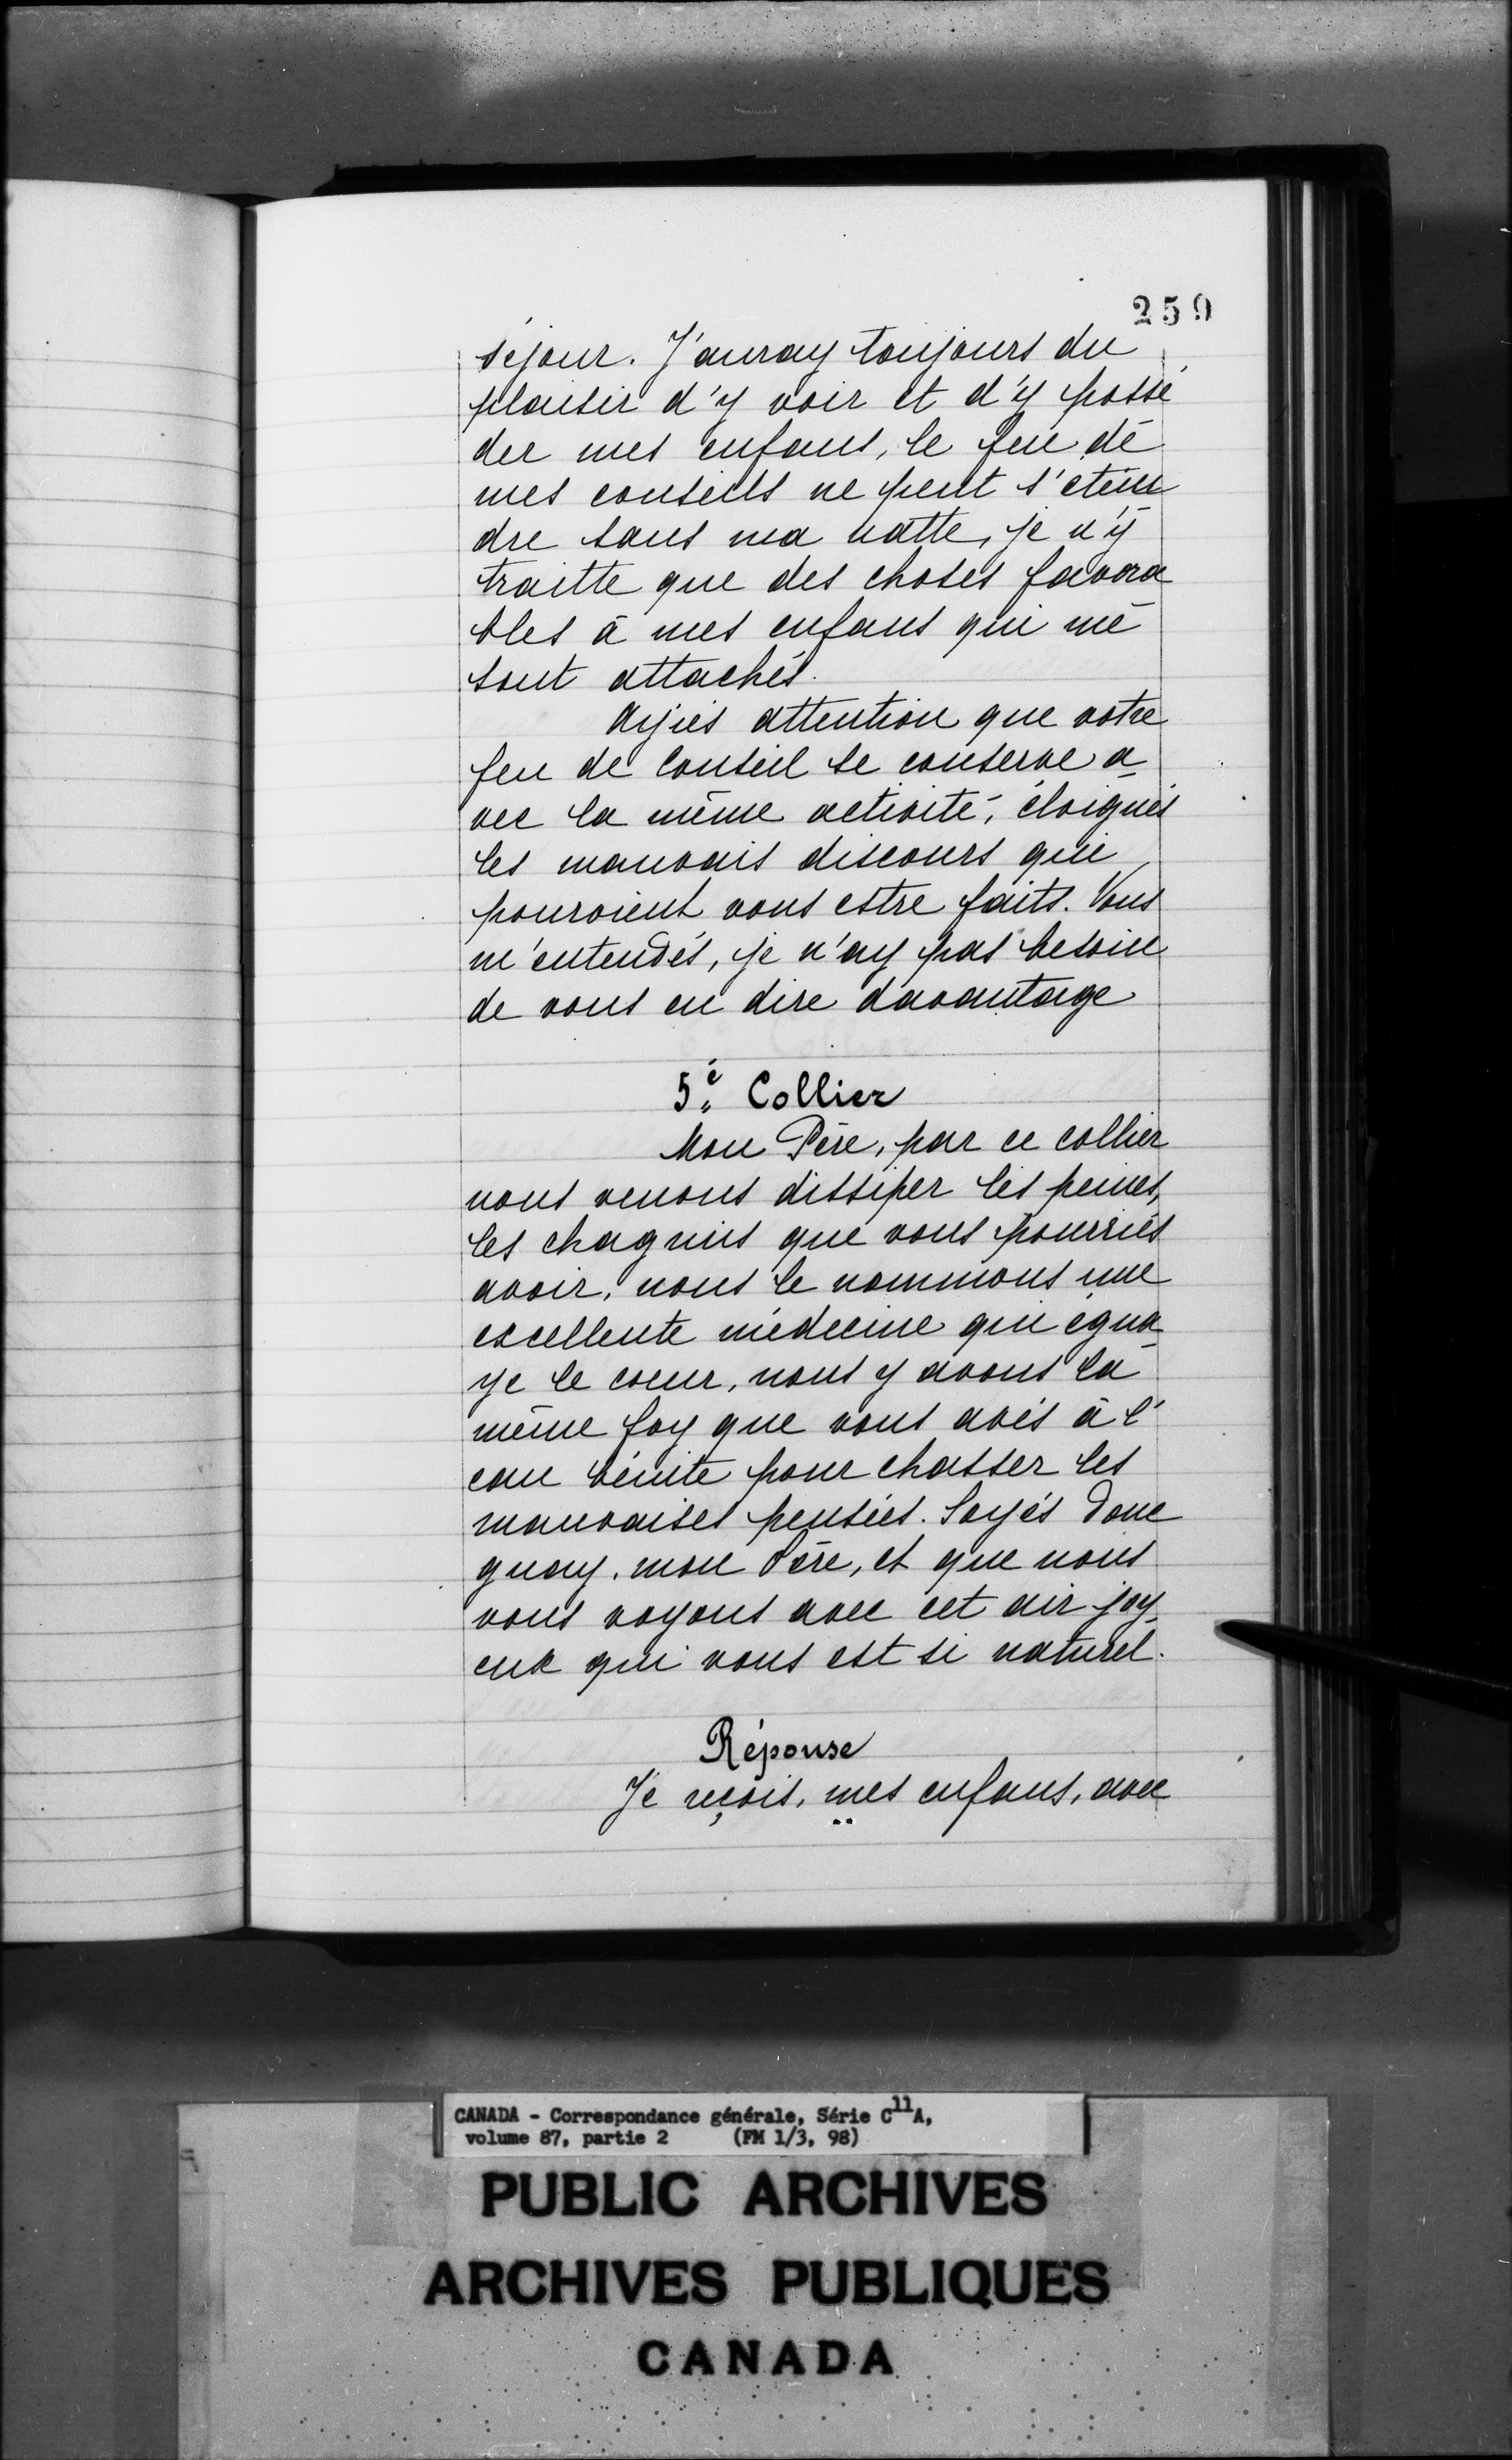 259
séjour. J'auray toujours du
plaisir d'y voir et d'y possé
der mes enfans, le feu de
mes conseils ne peut s'etein
dre sans ma natte, je n'y
traitte que des choses favora
bles à mes enfans qui me
sont attachés.
Ayiés attention que votre
feu de Conseil se conserve a
vec la même activité, éloignés
les mauvais discours qui
pouroient vous estre faits. Vous
m'entendés, je n'ay pas besoin
de vous en dire davantage
5e Collier
Mon Père, par ce collier
nous venons dissiper les peines,
les chagrins que vous pourriés
avoir, nous le nommons une
excellente médecine qui égua
ye le coeur, nous y avons la
même foy que vous avés à l'
eau bénite pour chasser les
mauvaises pensées. Soyés donc
guay, mon Père, et que nous
vous voyons avec cet air joy
eux qui vous est si naturel.
Réponse
Je reçois, mes enfans, avec
CANADA - Correspondance générale, Série C11A,
volume 87, partie 2 (FM 1/3, 98)
PUBLIC ARCHIVES
ARCHIVES PUBLIQUES
CANADA